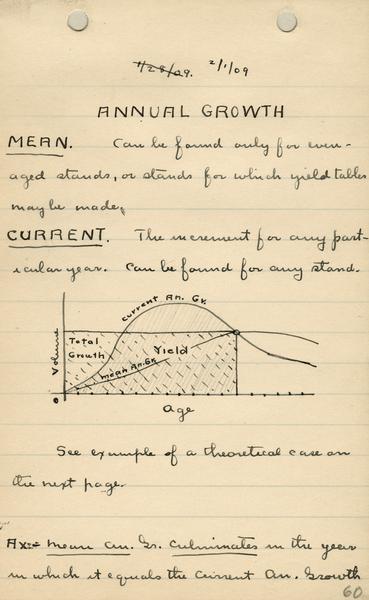 1/28/09. 2/1/09
ANNUAL GROWTH
MEAN. Can be found only for even-
aged stands, or stands for which yield tables
may be made.
CURRENT. The increment for any part-
icular year. Can be found for any stand.
Current An. Gr.
Total
Growth
Yield
mean An. Gr.
Volume
0
Age
See example of a theoretical case on
the next page.
Ax:- Mean an. Gr. culminates in the year
in which it equals the Current An. Growth
60